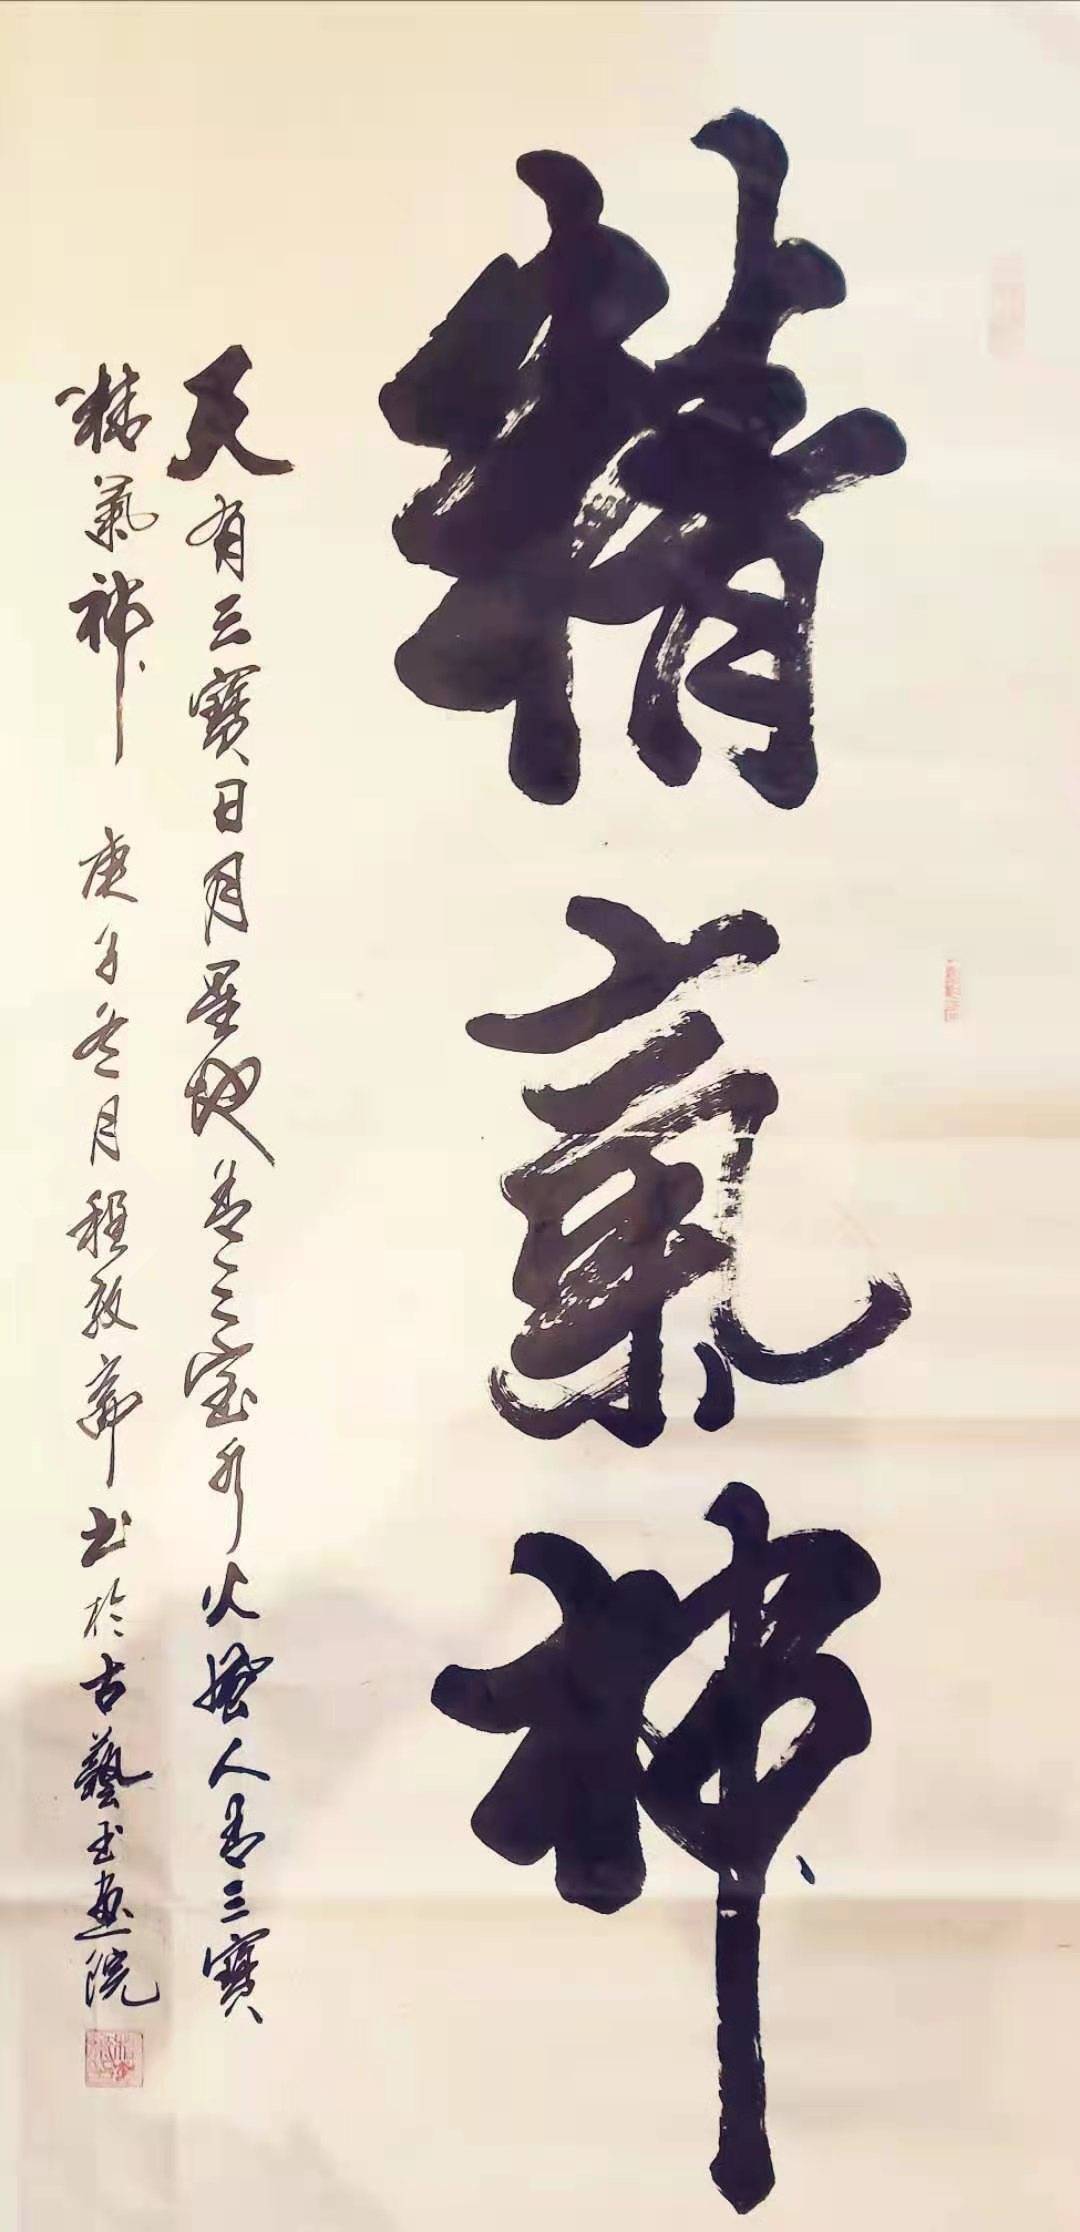 精氣神
天有三寶日月星地有三宝水火風人有三寶
精氣神 庚子冬月程敬齋书於古藝书画院